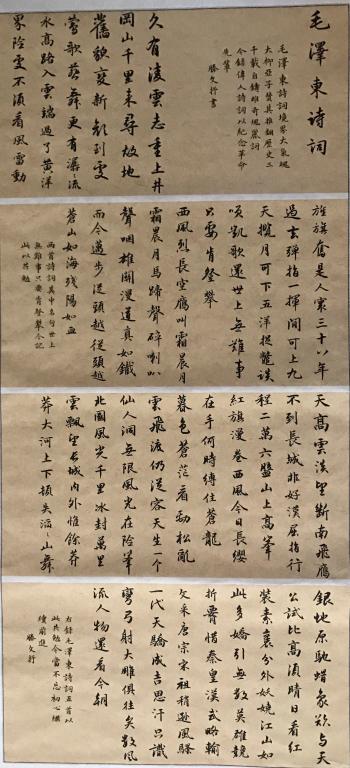 毛澤東诗词
毛澤東詩詞境界大氣魄
大柳亞子贊其推翻歷史三
千載自鑄雄奇瑰麗詞
今録偉人詩詞以紀念革命
先輩
勝文行書
久有淩雲志重上井
岡山千里来尋故地
舊貌變新颜到處
莺歌燕舞更有潺〻流
水高路入雲端過了黄洋
界险處不須看風雷動
旌旗奮是人寰三十八年
過去彈指一揮間可上九
天攬月可下五洋捉鱉谈
笑凯歌還世上無難事
只需肯登攀
西風烈長空鷹叫霜晨月
霜晨月馬蹄聲碎喇叭
聲咽雄關漫道真如鐵
而今邁步從頭越從頭越
蒼山如海殘陽如血
两首詩詞其中名句世上
無難事只要肯登攀今記
此以共勉
天高雲淡望斷南飛鷹
不到長城非好漢屈指行
程二萬六盤山上高峯
红旗漫卷西風今日長缨
在手何時缚住蒼龍
暮色蒼茫看勁松亂
雲飛渡仍從容天生一个
仙人洞無限風光在险峯
北國風光千里冰封萬里
雲飘望長城内外惟餘莽
莽大河上下頓失滔〻山舞
銀蛇原馳蜡象欲與天
公試比高須晴日看红
裝素裹分外妖嬈江山如
此多嬌引無數英雄競
折腰惜秦皇漢武略輸
文采唐宗宋祖稍逊風騷
一代天驕成吉思汗只識
彎弓射大雕俱往矣數風
流人物還看今朝
右録毛澤東詩詞五首以
此共勉今當不忘初心繼
續前進
勝文行